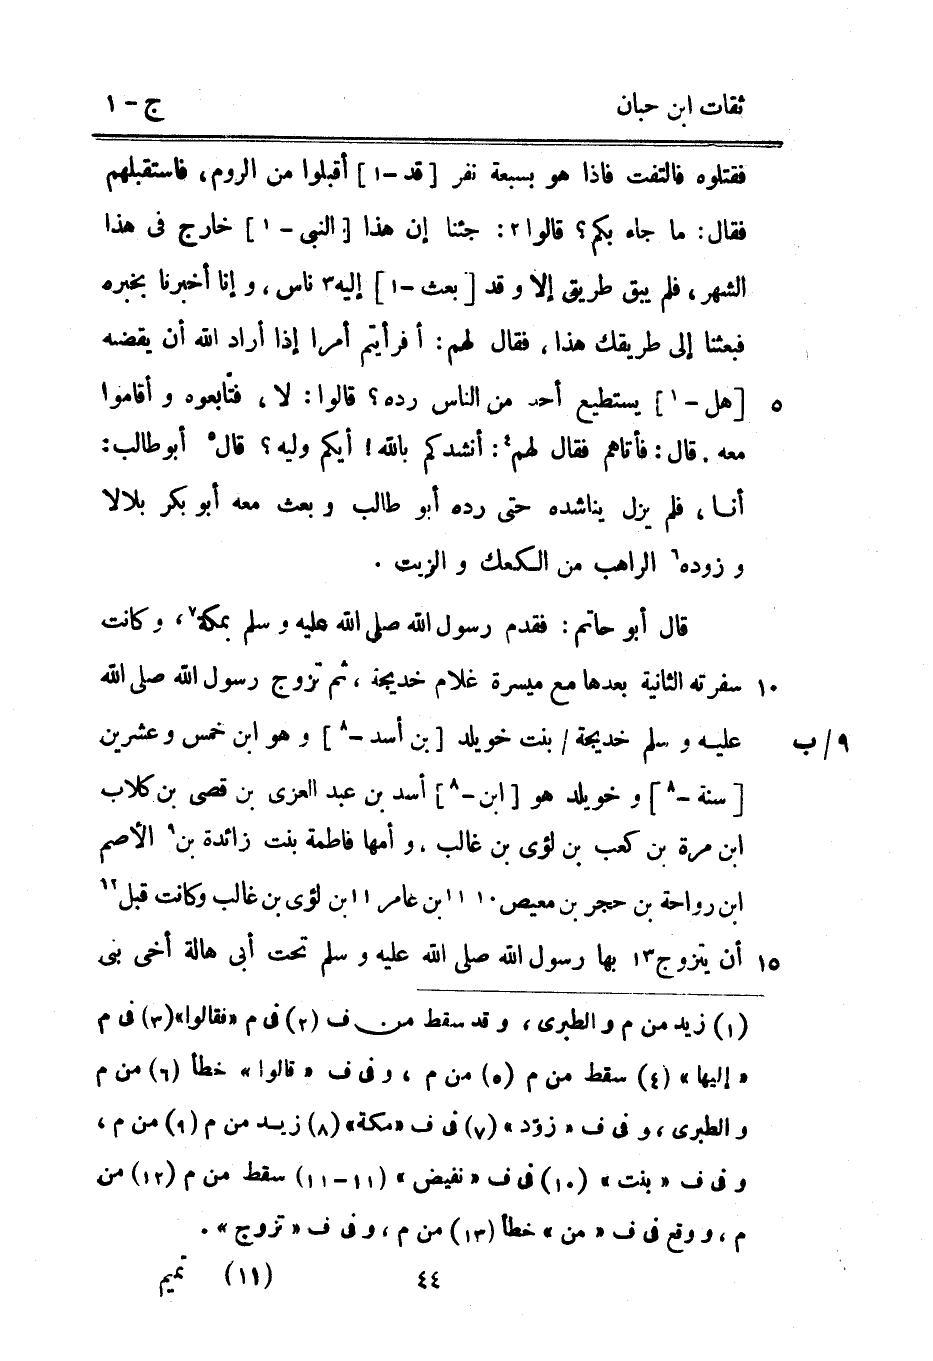 ثقات ابن حبان ج - ١
فقتلوه فالتفت فاذا هو بسبعة نفر [ قد -١ ] أقبلوا من الروم، فاستقبلهم
فقال: ما جاء بكم؟ قالوا٢: جئنا إن هذا [ النبي -١ ] خارج فى هذا
الشهر، فلم يبق طريق إلا و قد [ بعث -١ ] إليه٣ ناس، و إنا أخبرنا بخبره
فبعثنا إلى طريقك هذا، فقال لهم: أ فرأيتم أمرا إذا أراد الله أن يقضه
٥ [ هل -١ ] يستطيع أحد من الناس رده؟ قالوا: لا، فتابعوه و أقاموا
معه. قال: فأتاهم فقال لهم٤: أنشدكم بالله! أيكم وليه؟ قال٥ أبوطالب:
أنا، فلم يزل يناشده حتى رده أبو طالب و بعث معه أبو بكر بلالا
و زوده٦ الراهب من الكعك و الزيت.
قال أبو حاتم: فقدم رسول الله صلى الله عليه و سلم بمكة٧، و كانت
١٠ سفرته الثانية بعدها مع ميسرة غلام خديجة، ثم تزوج رسول الله صلى الله
٩/ب عليه و سلم خديجة / بنت خويلد [ بن أسد -٨ ] و هو ابن خمس و عشرين
[ سنة -٨ ] و خويلد هو [ ابن -٨ ] أسد بن عبد العزى بن قصى بن كلاب
ابن مرة بن كعب بن لؤى بن غالب، و أمها فاطمة بنت زائدة بن٩ الأصم
ابن رواحة بن حجر بن معيص١٠ ١١بن عامر١١ بن لؤى بن غالب وكانت قبل١٢
١٥ أن يتزوج١٣ بها رسول الله صلى الله عليه و سلم تحت أبى هالة أخى بنى
(١) زيد من م و الطبرى، و قد سقط من ف (٢) فى م «فقالوا» (٣) فى م
« إليها » (٤) سقط من م (٥) من م، و فى ف « قالوا » خطأ (٦) من م
و الطبرى، و فى ف « زوّد » (٧) فى ف «مكة» (٨) زيد من م (٩) من م،
و فى ف « بنت » (١٠) فى ف « نفيض » (١١-١١) سقط من م (١٢) من
م، و وقع فى ف « من » خطأ (١٣) من م، و فى ف « تزوج ».
٤٤ (١١) تميم